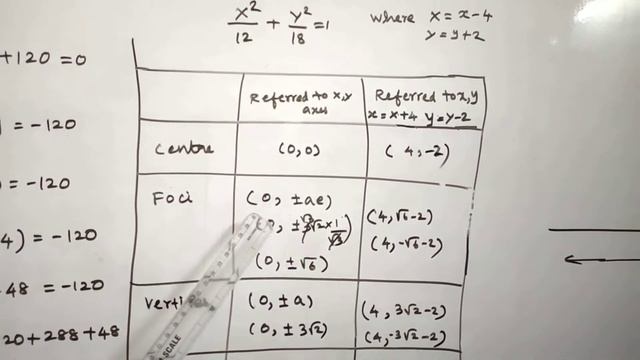 x²/12 + y²/18 = 1 where x = x-4
y = y+2
+120 = 0
= -120
= -120
4) = -120
48 = -120
20+288+48
Referred to x,y axes
Referred to x,y
x = x+4 y = y-2
Centre (0,0) (4,-2)
Foci (0, ±ae) (4,√6-2)
(4,-√6-2)
(0, ±√6)
(0, ±a) (4, 3√2-2)
(0, ±3√2) (4,-3√2-2)
SCALE